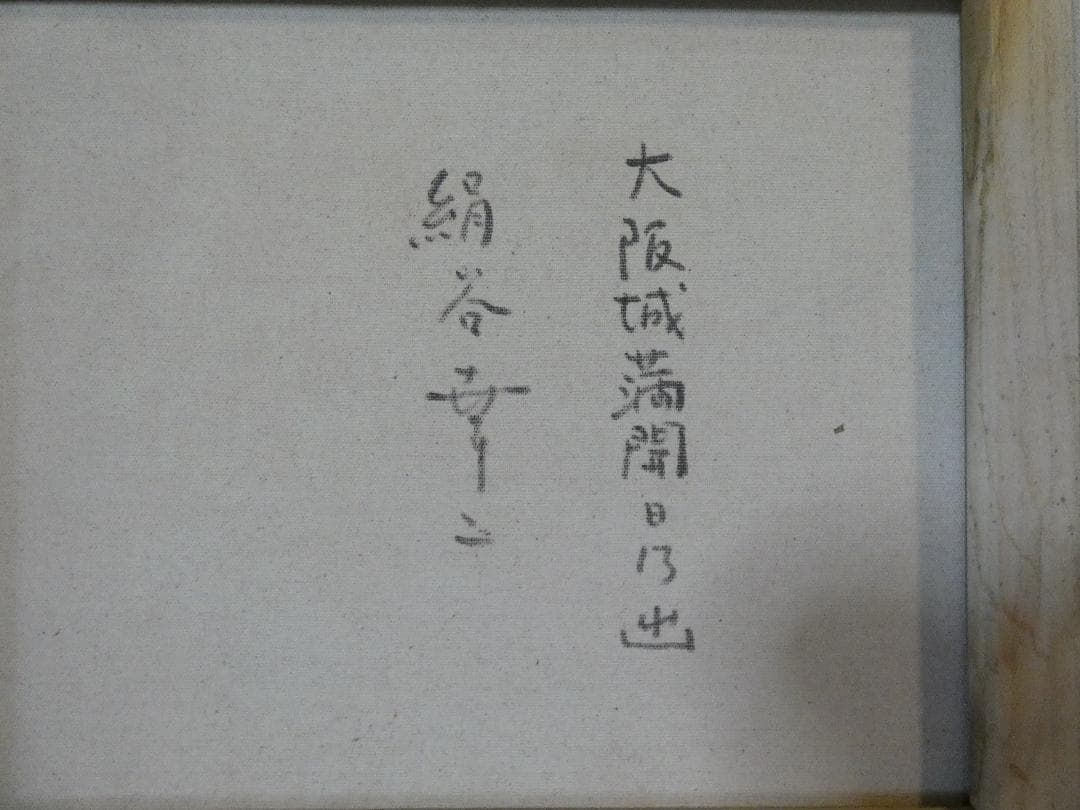 大阪城満開日乃出
絹谷幸二